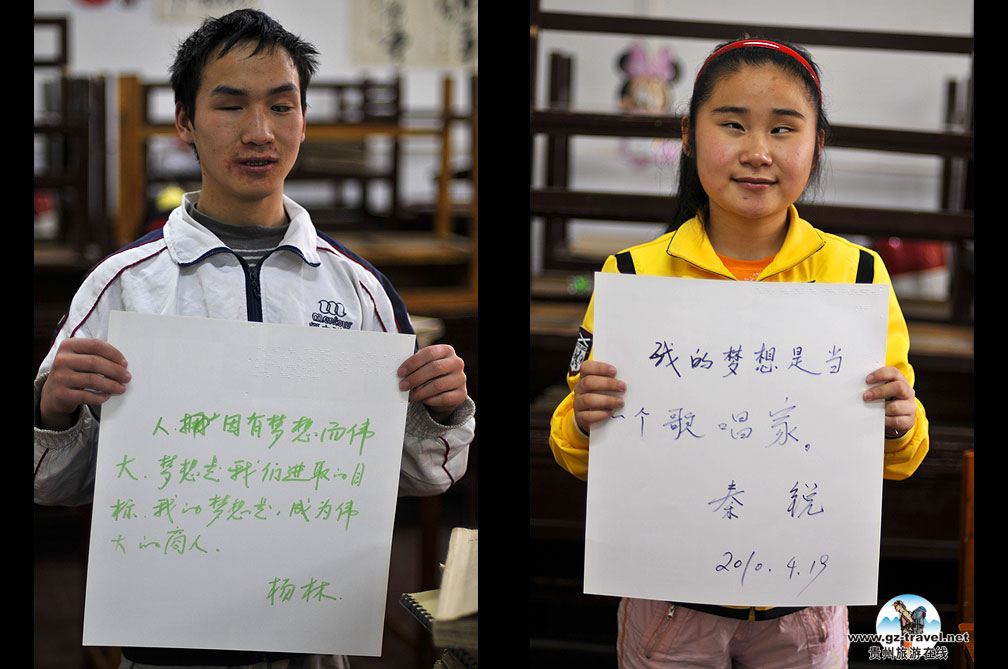 人.拥因有梦想而伟
大.梦想是我们进取的目
标.我的梦想是,成为伟
大的商人.
杨林.
我的梦想是当
一个歌唱家。
秦锐
2010.4.19
www.gz-travel.net
贵州旅游在线